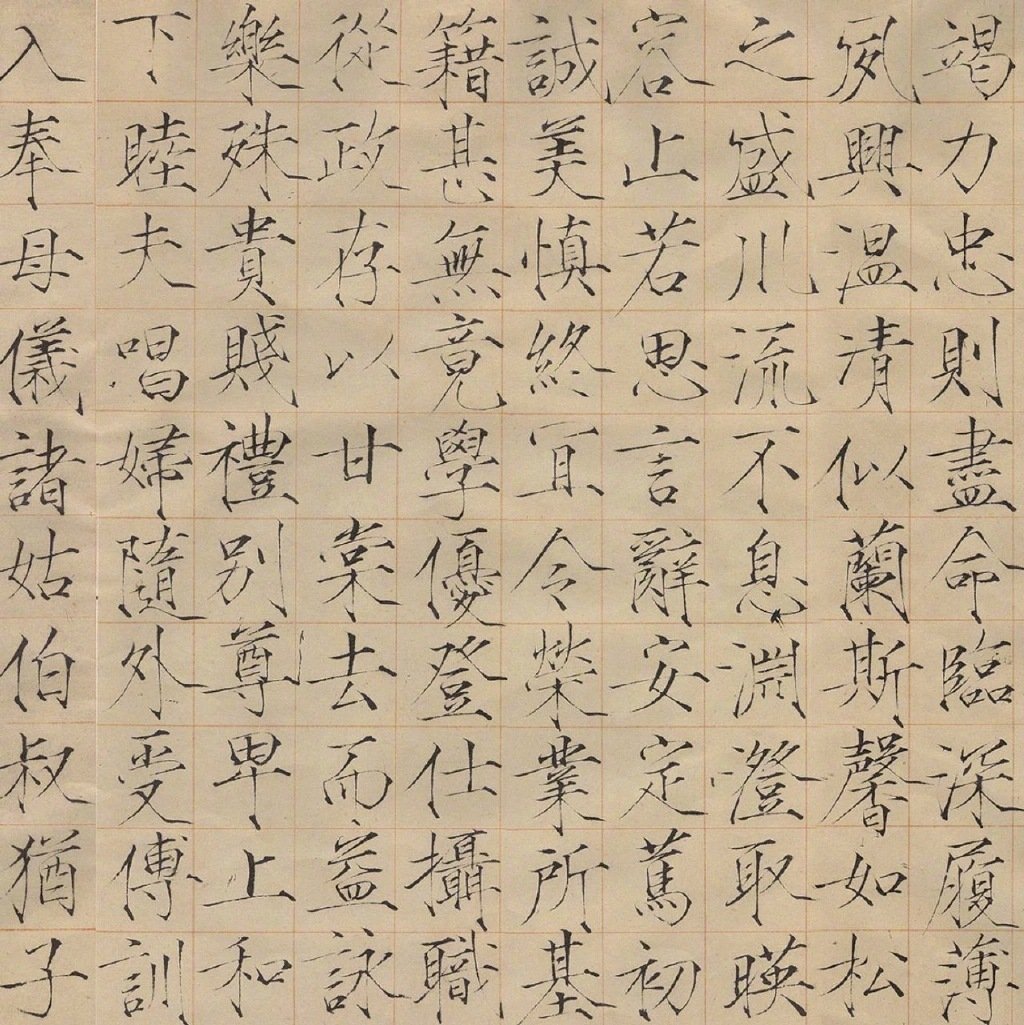 竭力忠則盡命臨深履薄
夙興温清似蘭斯馨如松
之盛川流不息淵澄取暎
容止若思言辭安定篤初
誠美慎終宜令榮業所基
籍甚無竟學優登仕攝職
從政存以甘棠去而益詠
樂殊貴賤禮別尊卑上和
下睦夫唱婦隨外受傅訓
入奉母儀諸姑伯叔猶子